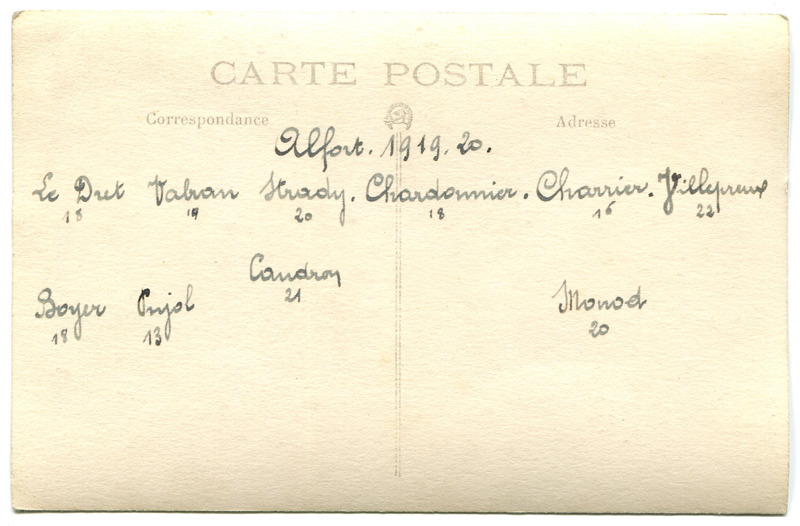 CARTE POSTALE
Correspondance Adresse
Alfort. 1919.20.
Le Dret Valran Strady. Chardonnier. Charrier. Villepreux
18 19 20 18 16 22
Caudron
21
Boyer Pujol Monod
18 13 20